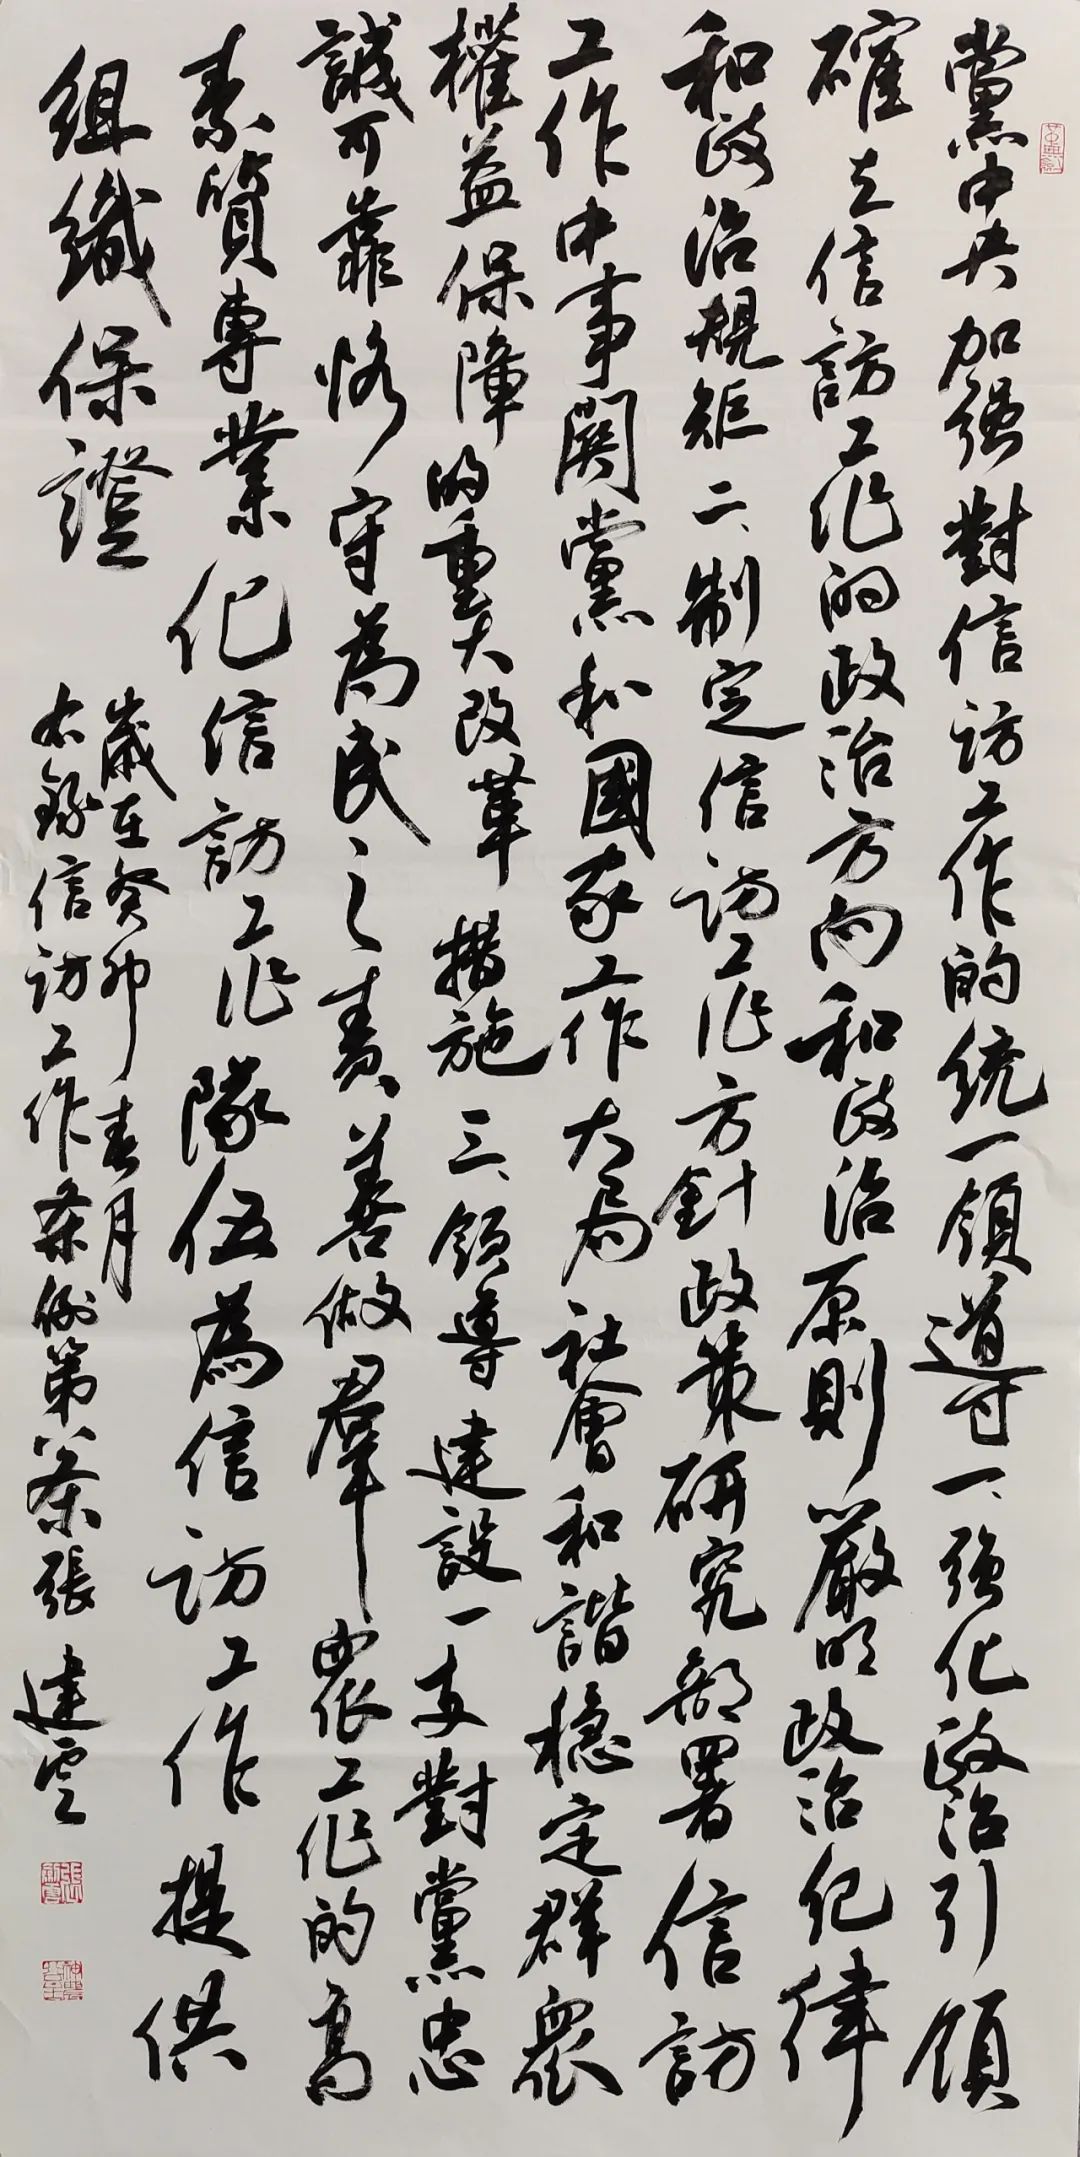 黨中央加强對信訪工作的統一領導一、强化政治引領
確立信訪工作的政治方向和政治原則嚴明政治紀律
和政治規矩二、制定信訪工作方針政策研究部署信訪
工作中事関黨和國家工作大局社會和諧穩定群衆
權益保障的重大改革措施三、領導建設一支對黨忠
誠可靠恪守為民之責善做羣衆工作的高
素質專業化信訪工作隊伍為信訪工作提供
組織保證
歲在癸卯春月
右錄信訪工作条例第八条張建雲